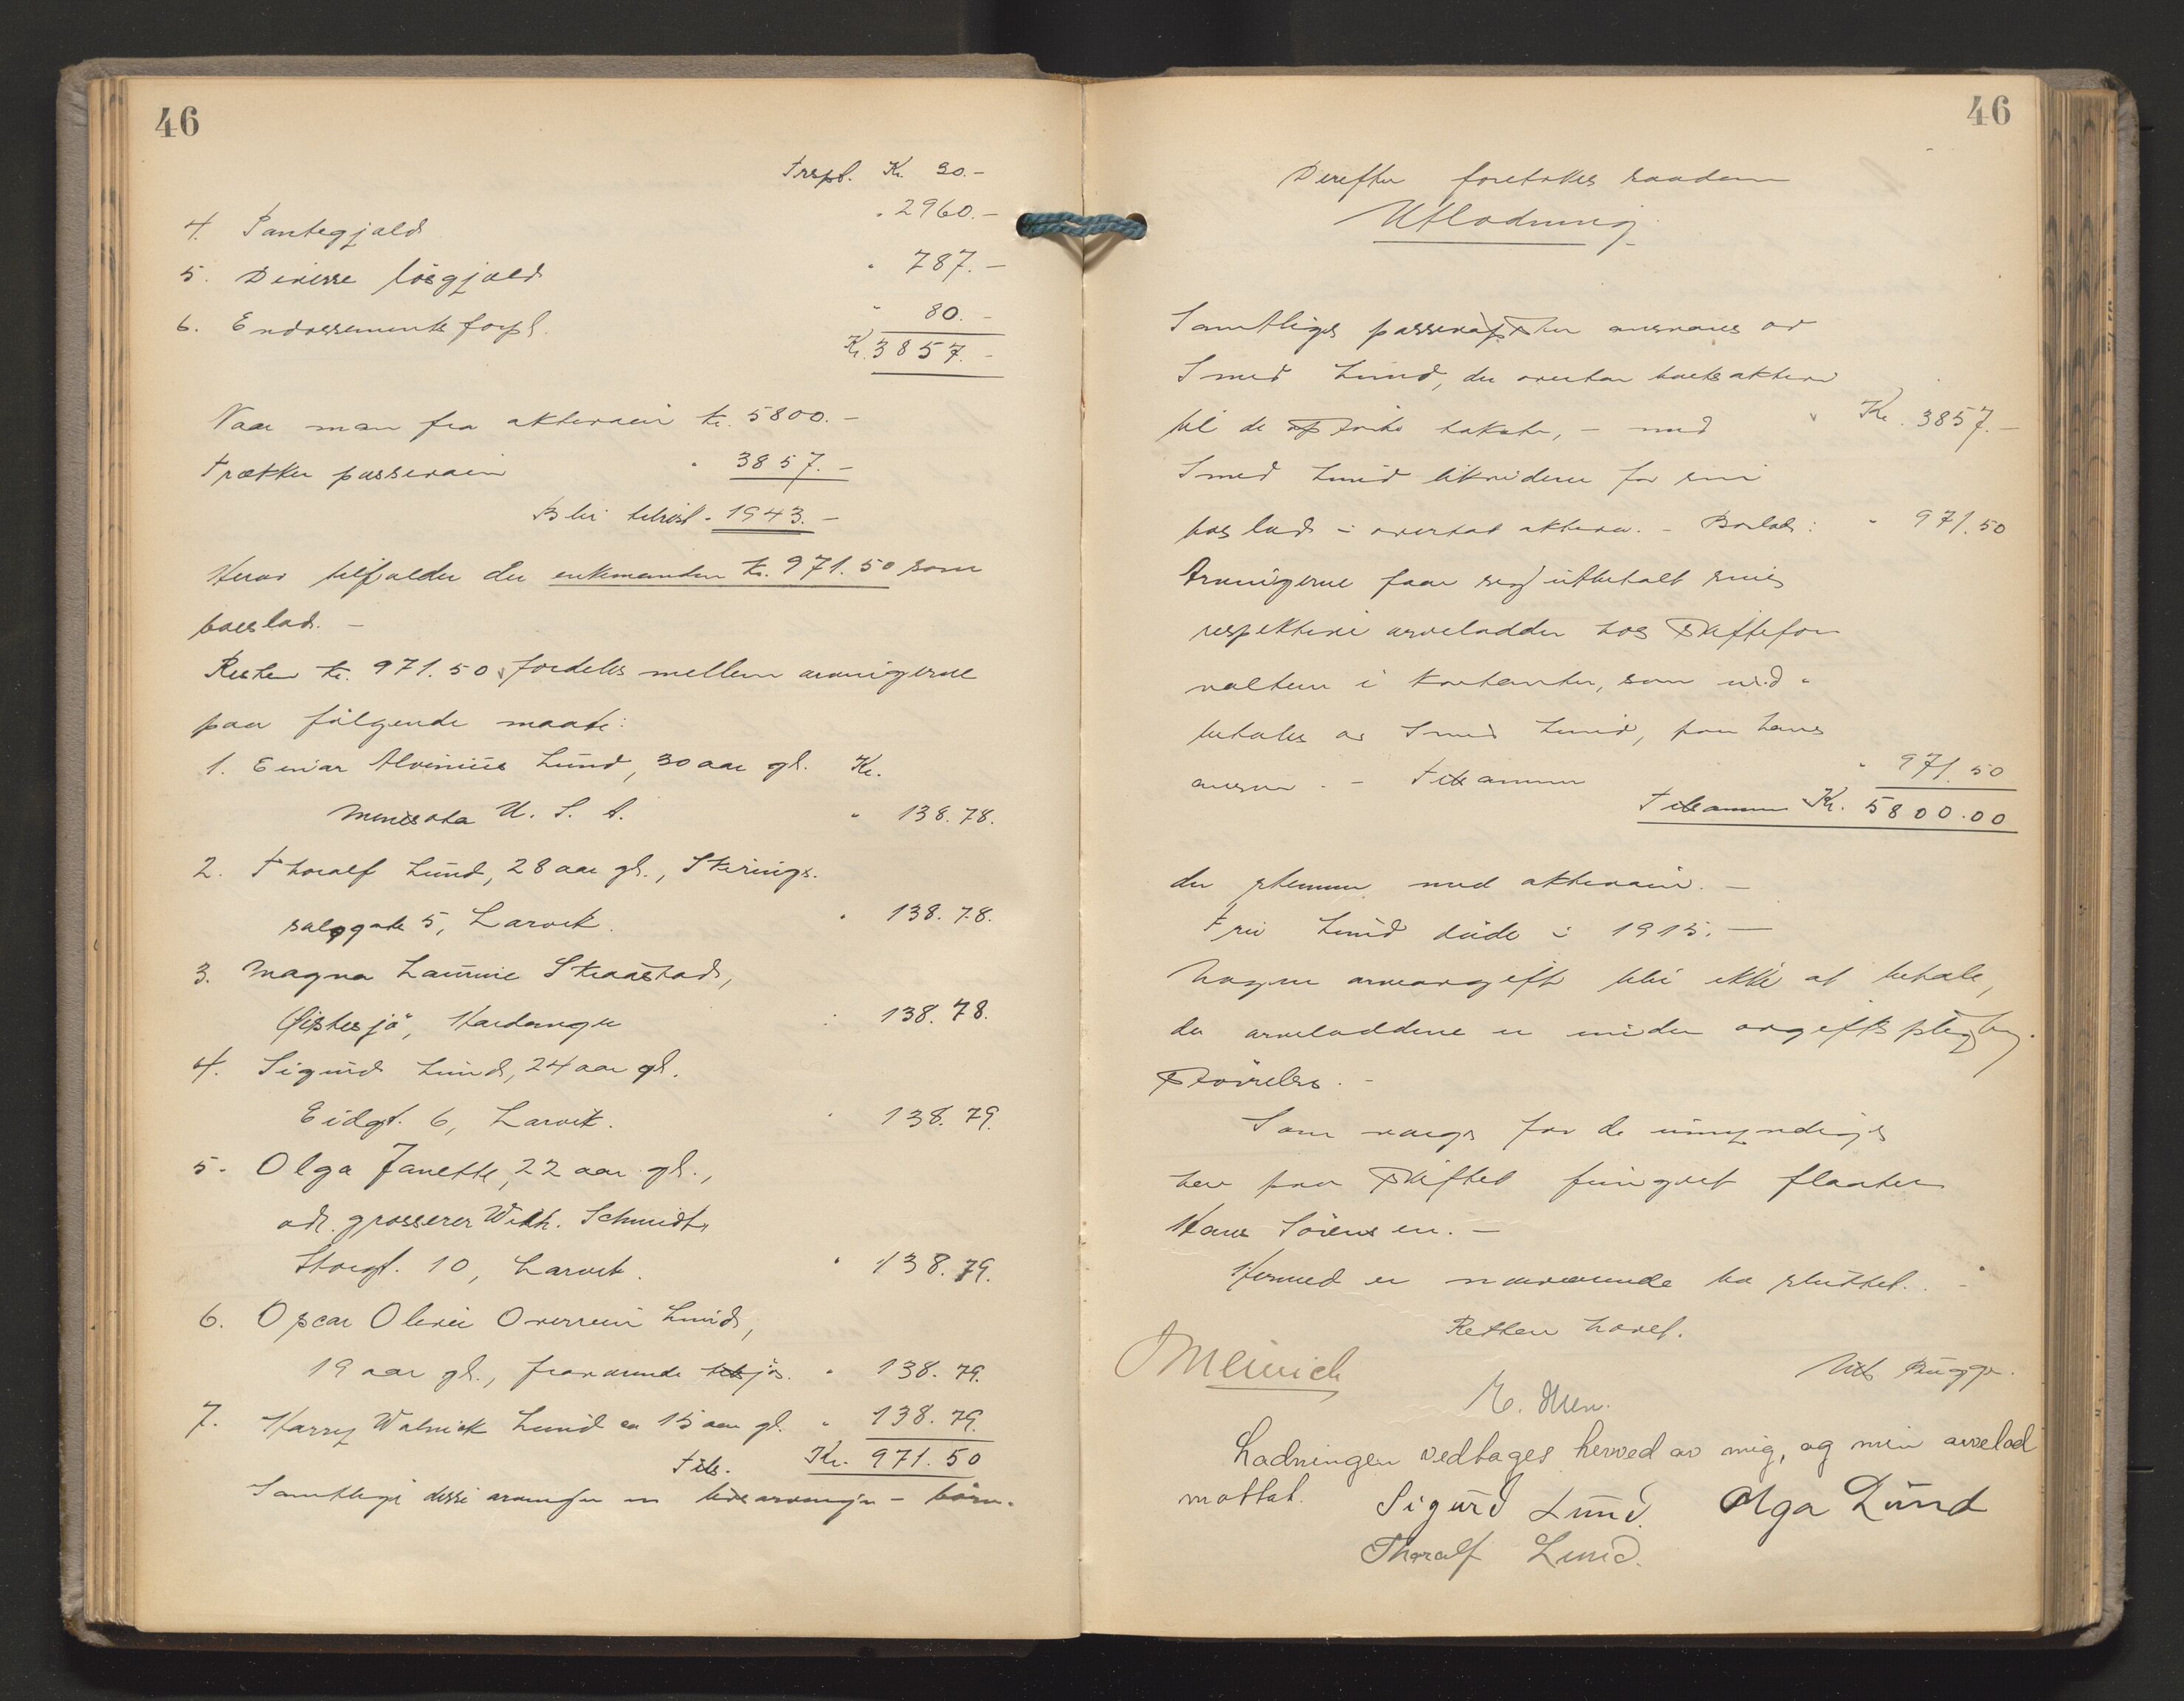 46
Trspt. Kr. 30.-
4. Pantegjæld " 2960.-
5. Diverse løsgjæld " 787.-
6. Endossementsforpl. " 80.-
Kr. 3857.-
Naar man fra aktivaen kr. 5800.-
trækker passivaen " 3857.-
Blir tilrest " 1943.-
Herav tilfalder der enkemanden kr. 971.50 som
boeslod. -
Resten kr. 971.50 fordeles mellem arvingerne
paa følgende maate:
1. Einar Alvinius Lund, 30 aar gl. Kr.
Minisota U. S. A. " 138.78.
2. Thoralf Lund, 28 aar gl., Skirings-
salsgate 5, Larvik. " 138.78.
3. Magna Laurine Skaastad,
Øistesjø, Hardanger " 138.78.
4. Sigurd Lund, 24 aar gl.
Eidgt. 6, Larvik. " 138.79.
5. Olga Janette, 22 aar gl.,
adr. grosserer Wilh. Schmidt,
Storgt. 10, Larvik. " 138.79.
6. Oscar Oliver Overvein Lund,
19 aar gl., fraværende tilsjøs. " 138.79.
7. Harry Walnick Lund ca 15 aar gl. " 138.79.
Tils. Kr. 971.50
Samtlige disse arvinger er livsarvinger - børn.
46
Derefter foretokes saadan
Utlodning.
Samtlige passivaposter ansvares av
Smed Lund, der overtar boets aktiva
til de satte takster, - med " Kr. 3857.-
Smed Lund likviderer for sin
boslod i overtat aktiva. - Boslod: " 971.50
Arvingerne faar sig utbetalt sine
respektive arvelodder hos skiftefor-
valteren i kontanter, som ind-
betales av Smed Lund, paa hans
ansvar. - Tilsammen " 971.50
Tilsammen Kr. 5800.00
der stemmer med aktivaen. -
Fru Lund døde i 1915. -
Nogen arveavgift blir ikke at betale,
da arveloddene er under avgiftspligtig
størrelse. -
Som verge for de umyndige
har paa skiftet fungeret flaater
Hans Sørensen. -
Hermed er nærværende bo sluttet. -
Retten hævet.
JMeinich
Nils Bugge.
E. Olsen.
Lodningen vedtages herved av mig, og min arvelod
mottat. Sigurd Lund. Olga Lund
Thoralf Lund.